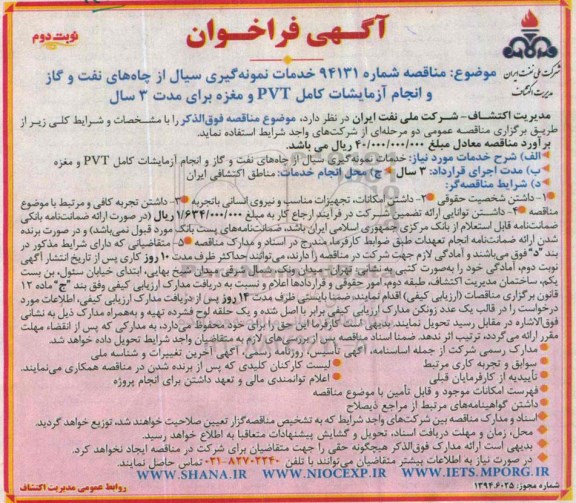 آگهی فراخوان
نوبت دوم
شرکت ملی نفت ایران
مدیریت اکتشاف
موضوع: مناقصه شماره ۹۴۱۳۱ خدمات نمونه‌گیری سیال از چاه‌های نفت و گاز
و انجام آزمایشات کامل PVT و مغزه برای مدت ۳ سال
مدیریت اکتشاف- شرکت ملی نفت ایران در نظر دارد، موضوع مناقصه فوق‌الذکر را با مشخصات و شرایط کلی زیر از
طریق برگزاری مناقصه عمومی دو مرحله‌ای از شرکت‌های واجد شرایط استفاده نماید.
برآورد مناقصه معادل مبلغ ۴۰/۰۰۰/۰۰۰/۰۰۰ ریال می باشد.
الف) شرح خدمات مورد نیاز: خدمات نمونه‌گیری سیال از چاه‌های نفت و گاز و انجام آزمایشات کامل PVT و مغزه
ب) مدت اجرای قرارداد: ۳ سال ج) محل انجام خدمات: مناطق اکتشافی ایران
د) شرایط مناقصه‌گر:
۱- داشتن شخصیت حقوقی ۲- داشتن امکانات، تجهیزات مناسب و نیروی انسانی باتجربه ۳- داشتن تجربه کافی و مرتبط با موضوع
مناقصه ۴- داشتن توانایی ارائه تضمین شرکت در فرآیند ارجاع کار به مبلغ ۱/۶۳۴/۰۰۰/۰۰۰ ریال (در صورت ارائه ضمانت‌نامه بانکی
ضمانت‌نامه قابل استعلام از بانک مرکزی جمهوری اسلامی ایران باشد، ضمانت‌نامه‌های پست بانک مورد قبول نمی‌باشد) و در صورت برنده
شدن ارائه ضمانت‌نامه انجام تعهدات طبق ضوابط کارفرما، مندرج در اسناد و مدارک مناقصه ۵- متقاضیانی که دارای شرایط مذکور در
بند "د" فوق می‌باشند و آمادگی لازم جهت شرکت در مناقصه را دارند، می‌توانند حداکثر ظرف مدت ۱۰ روز کاری پس از تاریخ انتشار آگهی
نوبت دوم، آمادگی خود را به‌صورت کتبی به نشانی: تهران، میدان ونک، شمال شرقی میدان شیخ بهایی، ابتدای خیابان سئول، بن بست
یکم، ساختمان مدیریت اکتشاف، طبقه دوم، امور حقوقی و قراردادها اعلام و نسبت به دریافت مدارک ارزیابی کیفی وفق بند "ج" ماده ۱۲
قانون برگزاری مناقصات (ارزیابی کیفی) اقدام نمایند، ضمنا بایستی ظرف مدت ۱۴ روز پس از دریافت مدارک ارزیابی کیفی، اطلاعات مورد
درخواست را در قالب یک عدد زونکن مدارک ارزیابی کیفی برابر با اصل شده و یک حلقه لوح فشرده تهیه و به‌همراه مدارک ذیل به نشانی
فوق‌الاشاره در مقابل رسید تحویل نمایند. بدیهی است کارفرما این حق را برای خود محفوظ می‌دارد، به مدارکی که پس از انقضاء مهلت
مقرر ارائه می‌گردد، ترتیب اثر ندهد. ضمنا اسناد مناقصه پس از بررسی‌های لازم به متقاضیان واجد شرایط تحویل داده خواهد شد.
مدارک رسمی شرکت از جمله اساسنامه، آگهی تأسیس، روزنامه رسمی آگهی آخرین تغییرات و شناسه ملی
سوابق و تجربه کاری مرتبط لیست کارکنان کلیدی که پس از برنده شدن در مناقصه همکاری می‌نمایند.
تأییدیه از کارفرمایان قبلی اعلام توانمندی مالی و تعهد داشتن برای انجام پروژه
فهرست امکانات موجود و قابل تأمین با موضوع مناقصه
داشتن گواهینامه‌های مرتبط از مراجع ذیصلاح
اسناد و مدارک مناقصه بین شرکت‌های واجد شرایط که به تشخیص مناقصه‌گزار تعیین صلاحیت خواهند شد، توزیع خواهد گردید.
محل، زمان و مهلت دریافت اسناد، تحویل و گشایش پیشنهادات متعاقبا به اطلاع خواهد رسید.
بدیهی است ارائه مدارک فوق‌الذکر هیچگونه حقی را جهت متقاضیان برای شرکت در مناقصه ایجاد نخواهد کرد.
در صورت نیاز به اطلاعات بیشتر متقاضیان می‌توانند با تلفن ۸۲۷۰۲۲۴۰-۰۲۱ تماس حاصل نمایند.
WWW.SHANA.IR WWW.NIOCEXP.IR WWW.IETS.MPORG.IR
شماره مجوز: ۱۳۹۴.۶۰۲۵
روابط عمومی مدیریت اکتشاف